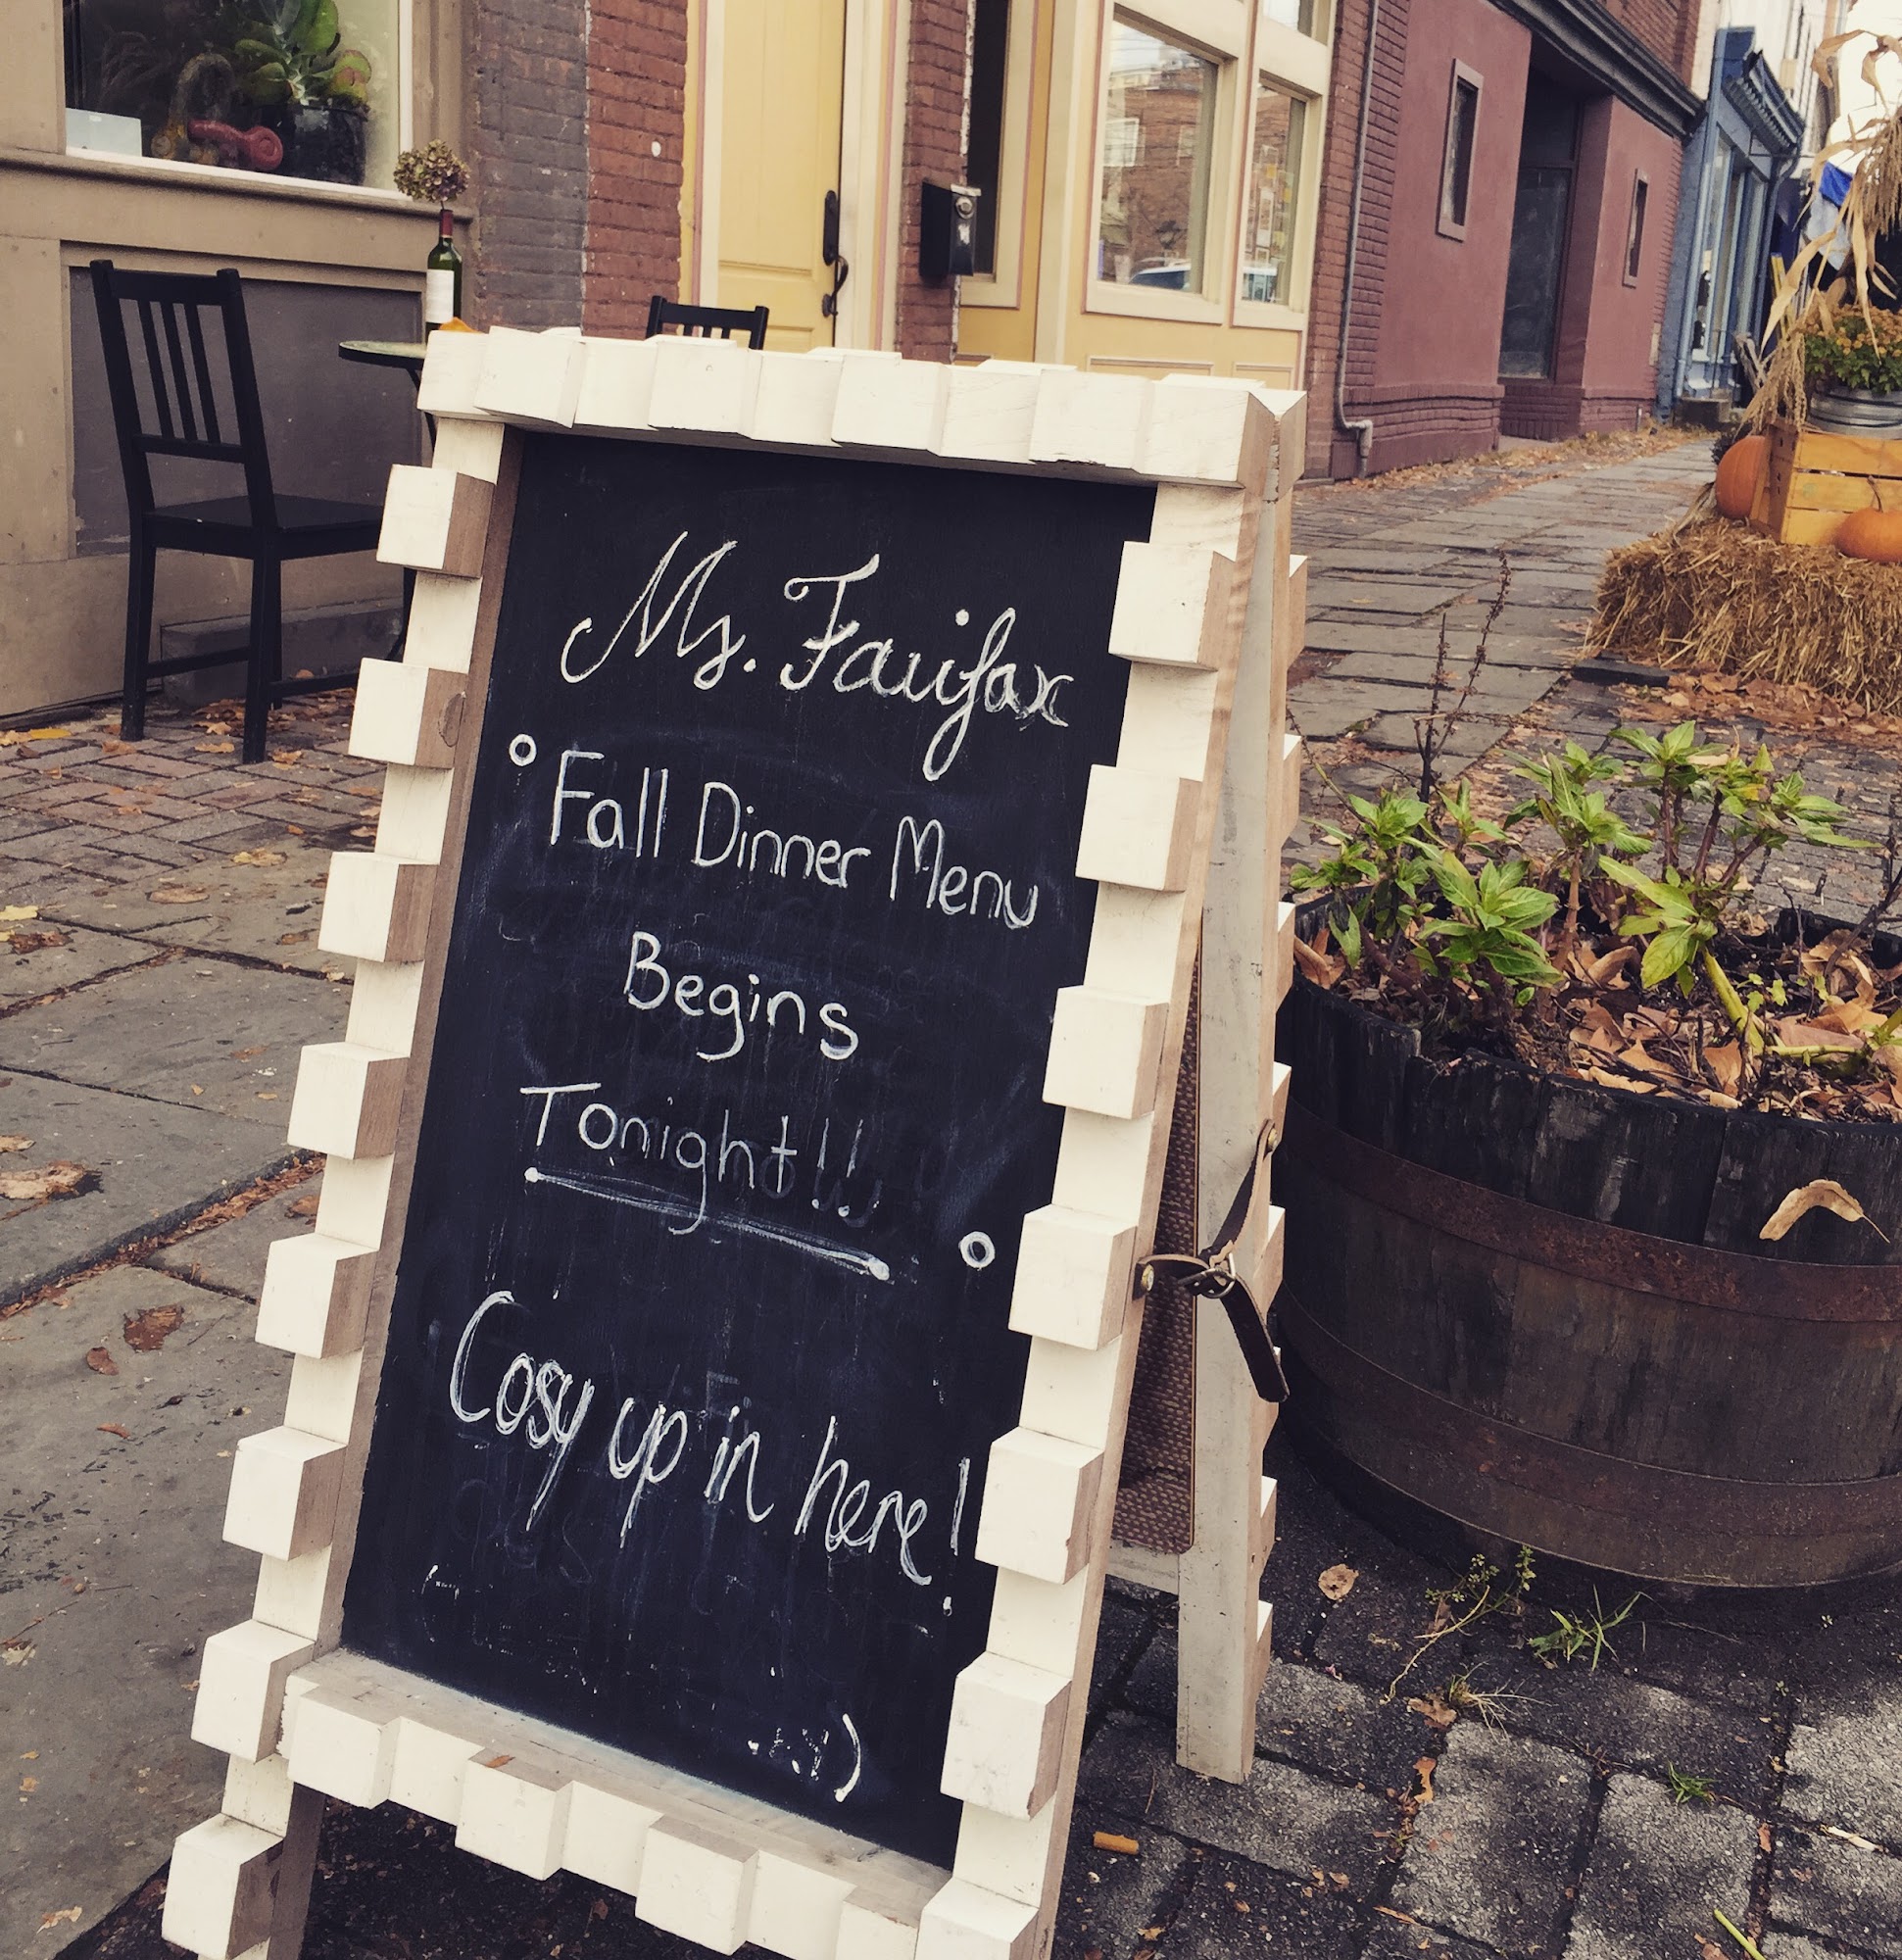 Ms. Fairfax
Fall Dinner Menu
Begins
Tonight!!
Cosy up in here!